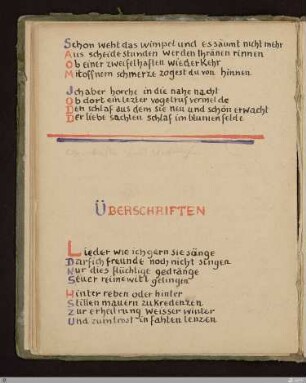 Schon weht das wimpel und es säumt nicht mehr
Aus scheidestunden werden thränen rinnen
Ob einer zweifelhaften wiederkehr
Mit offnem schmerze zogest du von hinnen
Ich aber horche in die nahe nacht
Ob dort ein lezter vogelruf vermelde
Den schlaf aus dem sie neu und schön erwacht
Der liebe sachten schlaf im blumenfelde
ÜBERSCHRIFTEN
Lieder wie ich gern sie sänge
Darf ich freunde noch nicht singen
Nur dies flüchtige gedränge
Scheuer reime will gelingen
Hinter reben oder hinter
Stillen mauern zu kredenzen
Zur erheitrung weisser winter
Und zum trost in fahlen lenzen